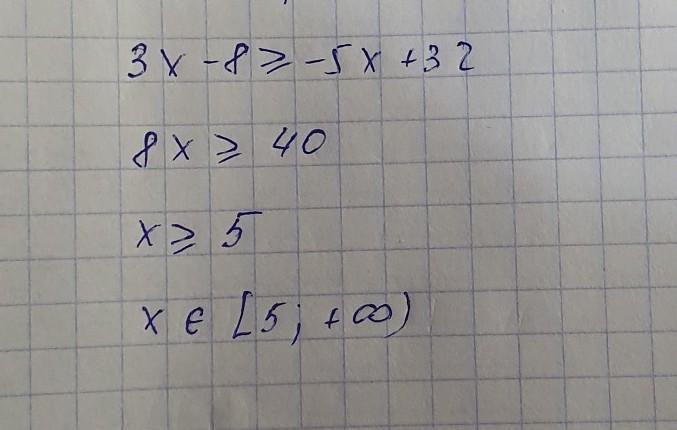 3x - 8 ⩾ -5x + 32
8x ⩾ 40
x ⩾ 5
x ∈ [5; +∞)